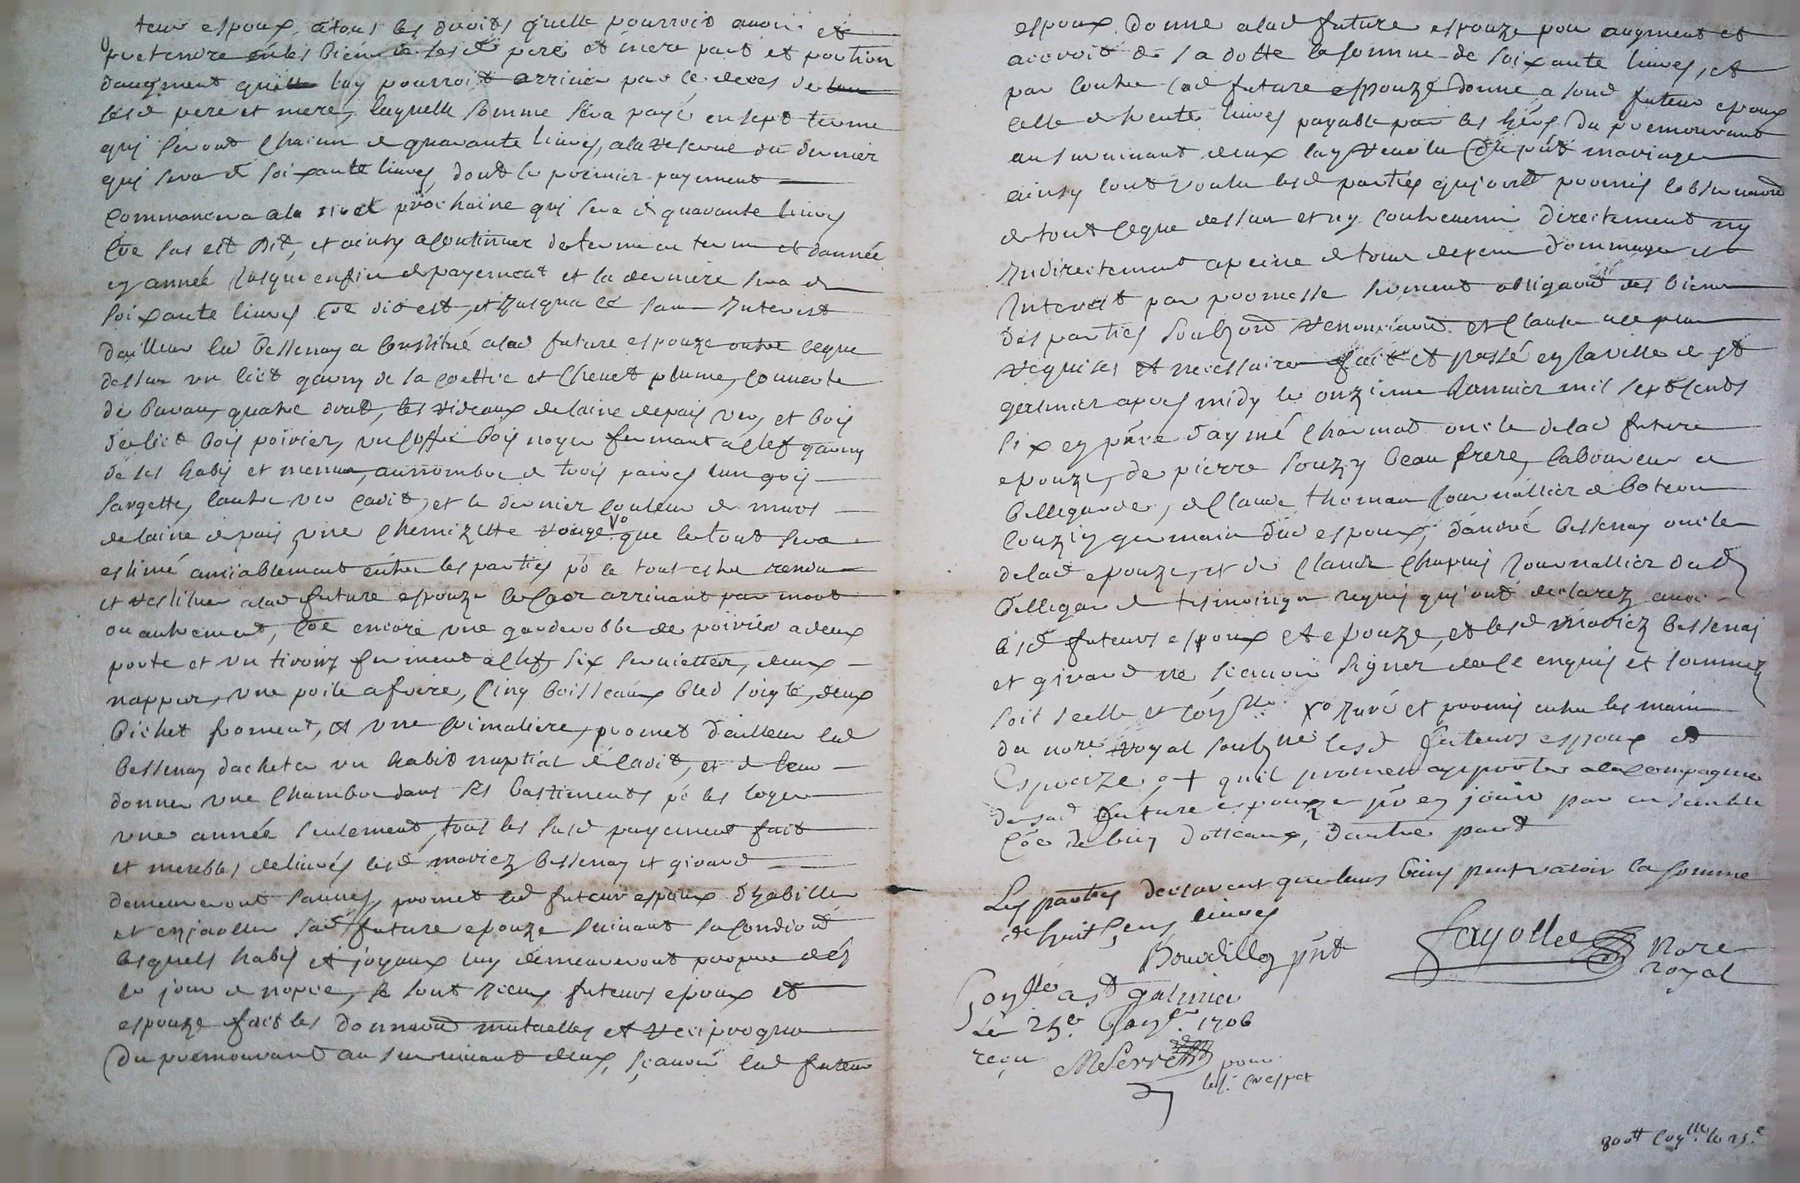 teur espoux, a tous les droits qu'elle pourroit avoir et
pretendre en les biens de sesd pere et mere part et portion
daugment quelle luy pourroit arriver par le deces de
sesd pere et mere, laquelle somme sera payé en sept terme
quj seront chacun de quarante livres, a la reserve du dernier
quj sera de soixante livres, dont le premier payement
commancera a la st prochaine quj sera de quarante livres
Coe sus est dit, et ainsy a continuer de terme en terme et dannée
en année Jusques enfin de payement et la derniere sera de
soixante livres Coe dit est, et Jusqua ce sans Interest
dailleur led Bessenay a constitué a lad future espouze outre ceque
dessus un lict garny de sa coettre et chevet plume, couverte
de quatre drat, les rideaux de laine de pais vers, et bois
de lict bois poirier, un coffre bois noyer fermant a clef garny
de ses habis et menu, au nombre de trois paires lun gris
sargette, lautre de cadit, et le dernier couleur de murs
de laine de pais, une chemizette rouge Vo que le tout sera
estimé amiablement entre les parties po le tout estre rendu
et restituer a lad future espouze le cas arrivant par mort
ou autrement, Coe encore une garderobbe de poirier a deux
porte et un tiroirs fermant a clef, six serviettes, deux
nappes, une poile a frire, cinq boisseaux bled soigle, deux
bichet froment, et une promet dailleur led
Bessenay dacheter un habit nuptial de cadit, et de leur
donner une chambre dans ses bastiments po les loger
une année seulement, tous les susd payement fait
et meubles delivrés lesd mariez Bessenay et girard
demeureront promet led futeur espoux dhabiller
et enjoaller sad future epouze suivant sa condiōn
lesquels habis et joyaux luy demeureront propre dés
le jour de nopce, se sont Iceux futeurs epoux et
espouze fait les donnaōn mutuelles et reciproque
Du premourant au survivant deux, sçavoir led futeur
espoux donne a lad future espouze pour augment et
acroit de sa dotte la somme de soixante livres, et
par contre lad future espouze donne a sond futeur epoux
celle de trente livres payable par les héres du premourant
au survivant deux Du pnt mariage
ainsy lont voulu lesd parties quj ont promis lobserver
de tout ceque dessus et ny contrevenir directement ny
Indirectement a peine de tous depens dommage et
Interest par promesse serment obligaōn des biens
des parties renonciaōn et clause
requises et necessaires fait et passé en la ville de st
germier apres midy le onzieme Janvier mil sept cents
six en pnce daymé Charmat oncle de lad future
epouze, de pierre Souzy beau frere, laboureur de
Bellegarde, de Claude thomas Journallier de
couzin germain dud espoux, dandré Bessenay oncle
de lad epouze, et de Claude Chapuis Journallier dud
Bellegarde tesmoings requis quj ont declarez avec
lesd futeurs espoux et epouze, et lesd mariez bessenaj
et girard ne scavoir signer de ce enquis et sommez
soit scelle et conlle Xo Juré et promis entre les main
du nore royal soubzne lesd futeurs espoux et
Espouze, + quil promet apporter a la compagnie
de sad future epouze po en jouir par ensemble
Coe de biens dotteaux, dautre part
Les parties declarent que leurs biens peut valoir la somme
de huit cens livres
Bourdillon pnt
fayolle nore
royal
Conlle a st galmier
Le 25e Janer 1706
reçu
MSerre pour
led. crespet
800tt Conlle le 25e